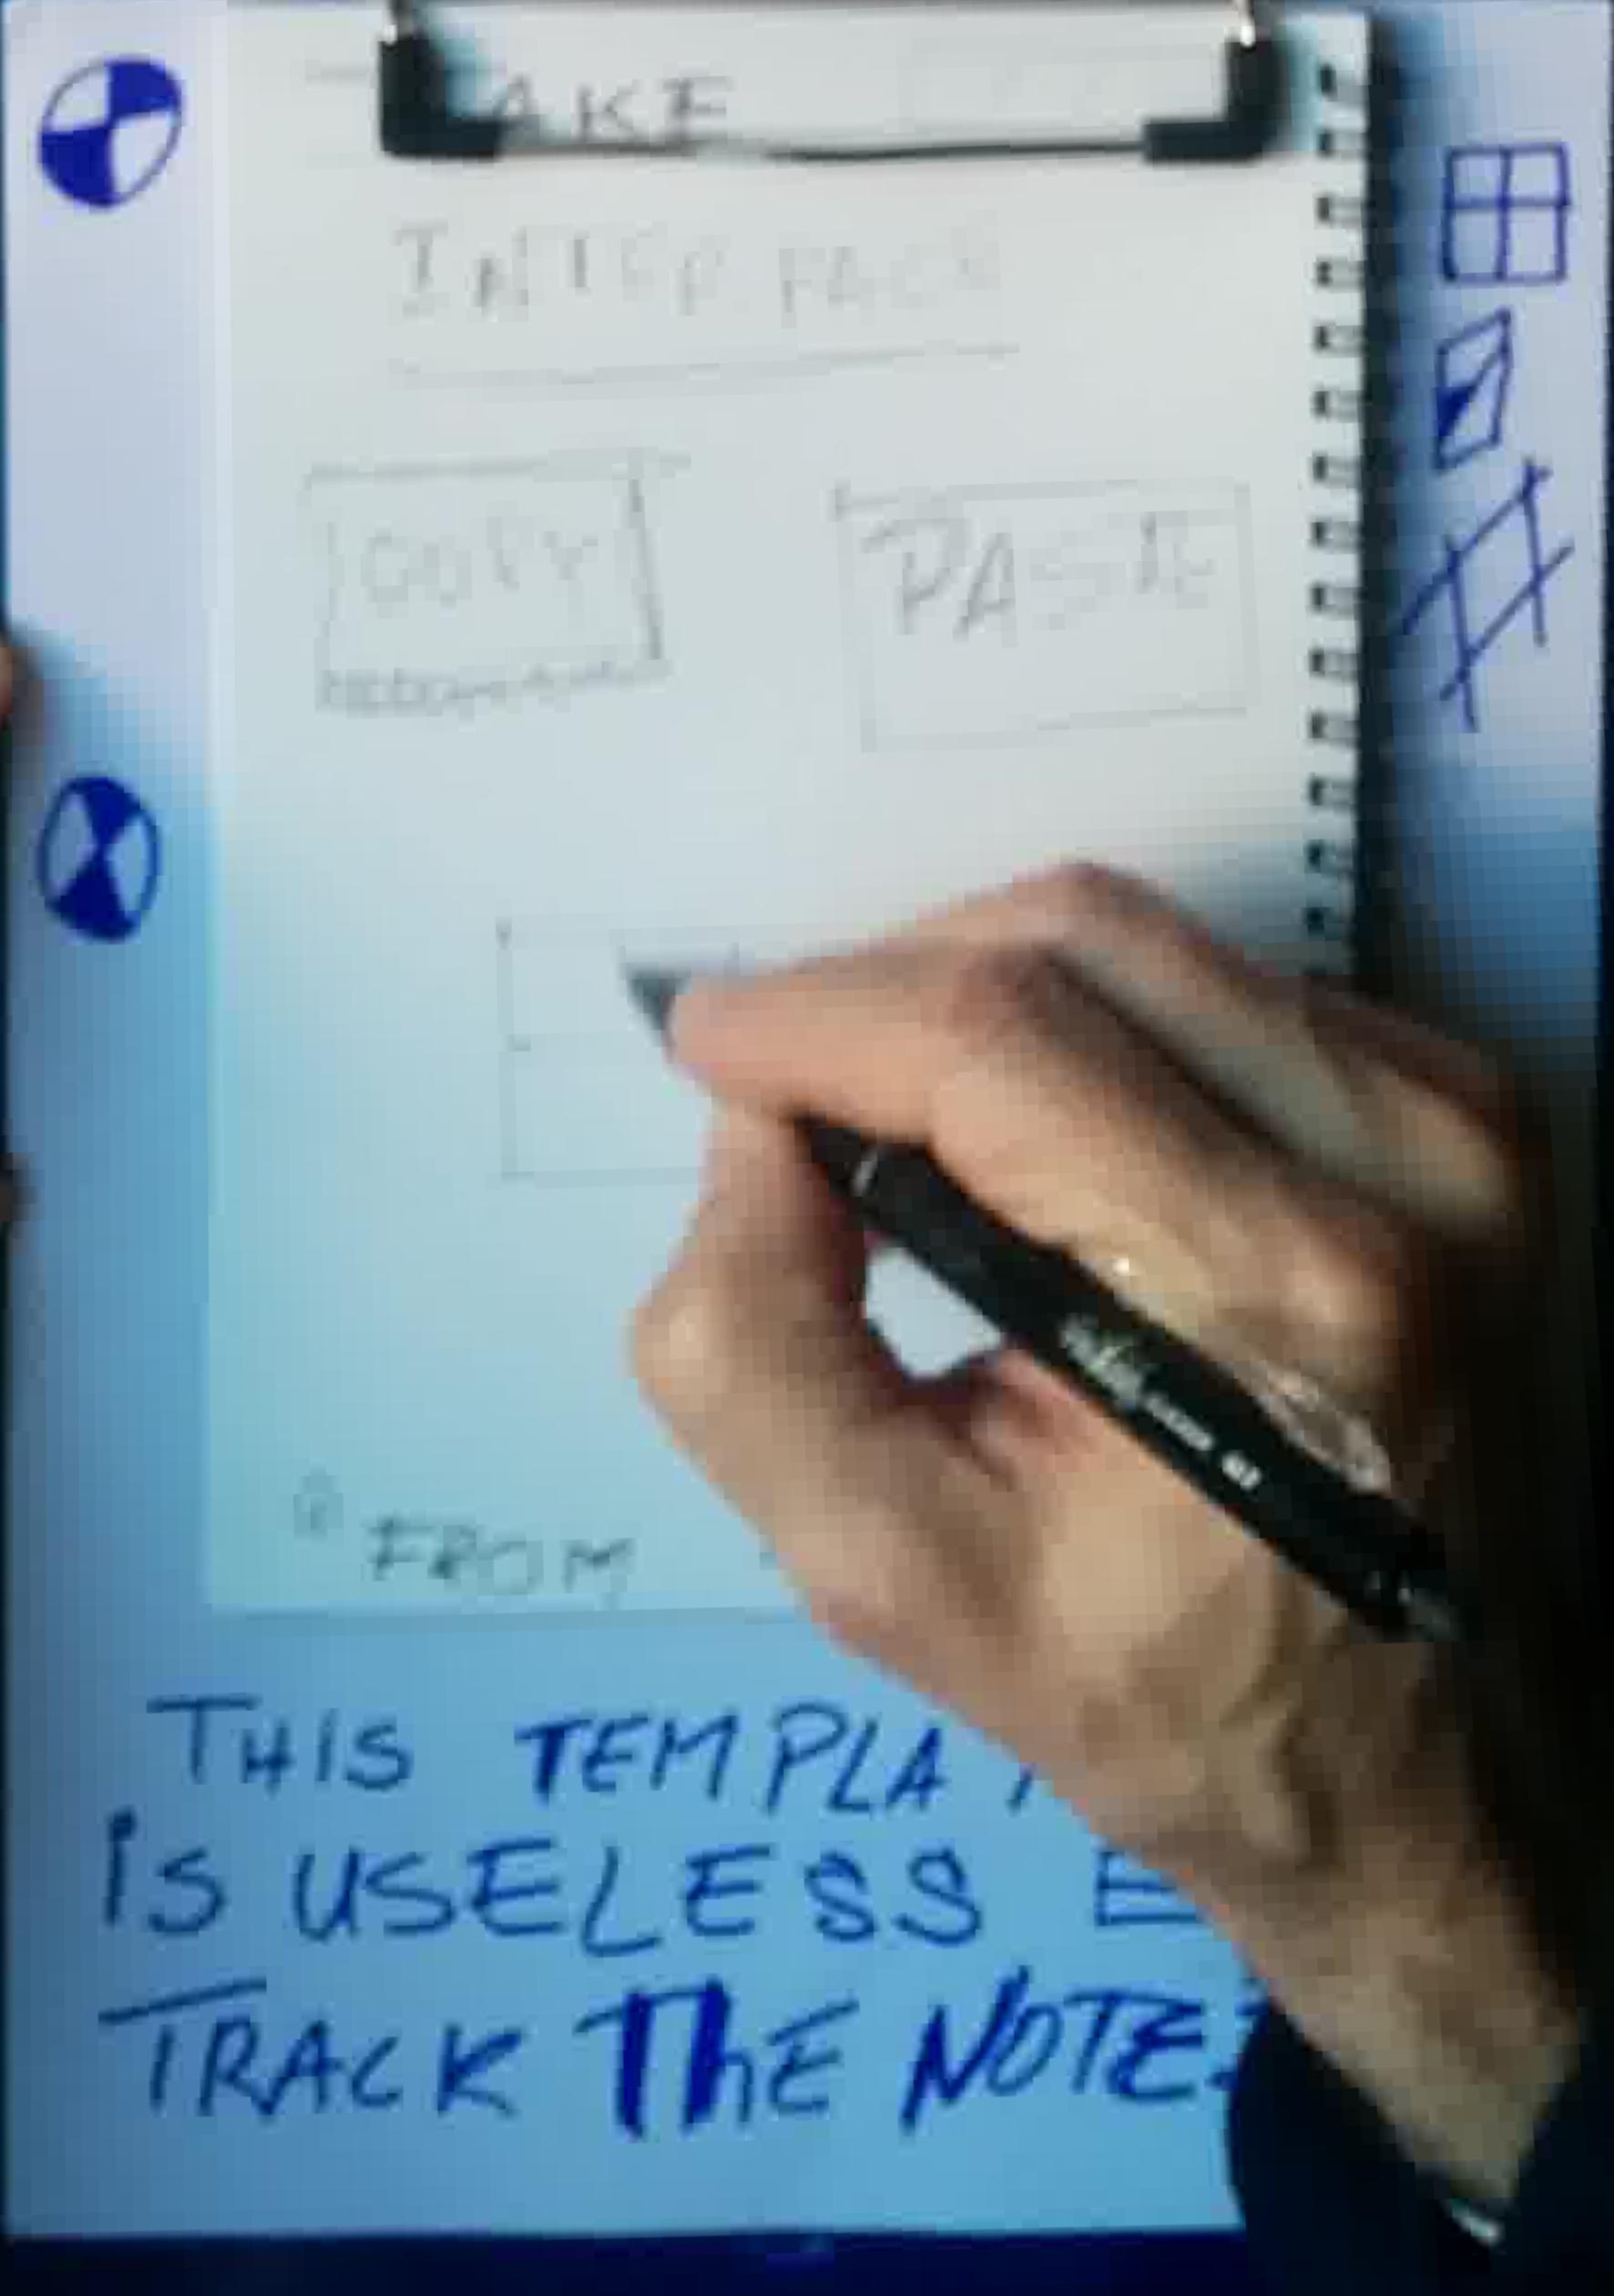 AKE
INTERFACE
COPY
PASTE
FROM
THIS TEMPLA
IS USELESS E
TRACK THE NOTE